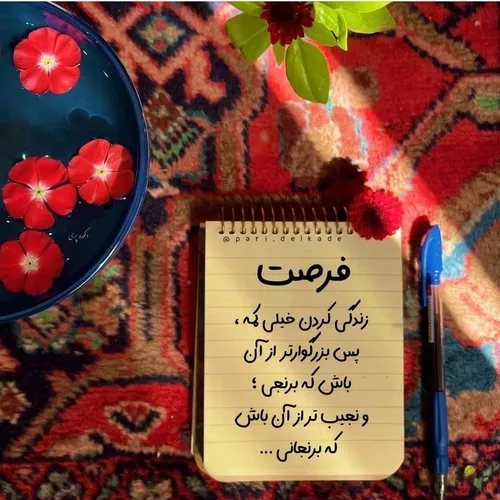 @pari.delkade
فرصت
زندگی کردن خیلی کمه ،
پس بزرگوارتر از آن
باش که برنجی ؛
و نجیب تر از آن باش
که برنجانی ...
دلکده پری